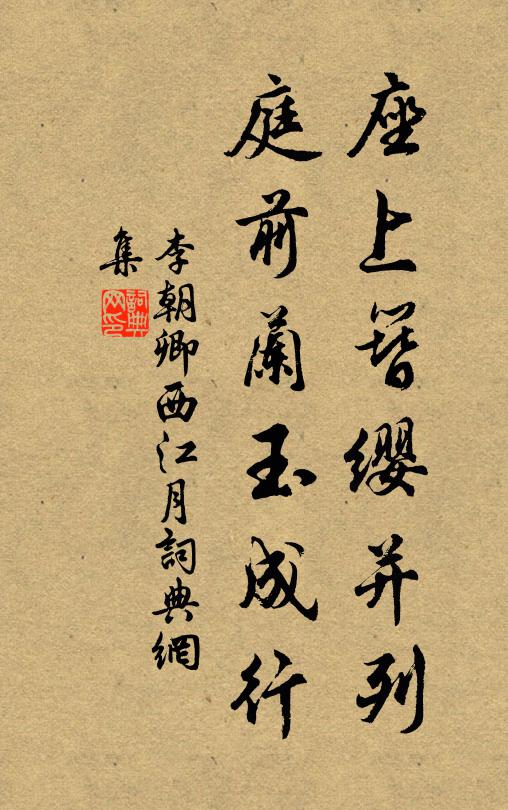 座上簪缨并列
庭前蘭玉成行
李朝卿西江月詞典網
集
詞典
网印